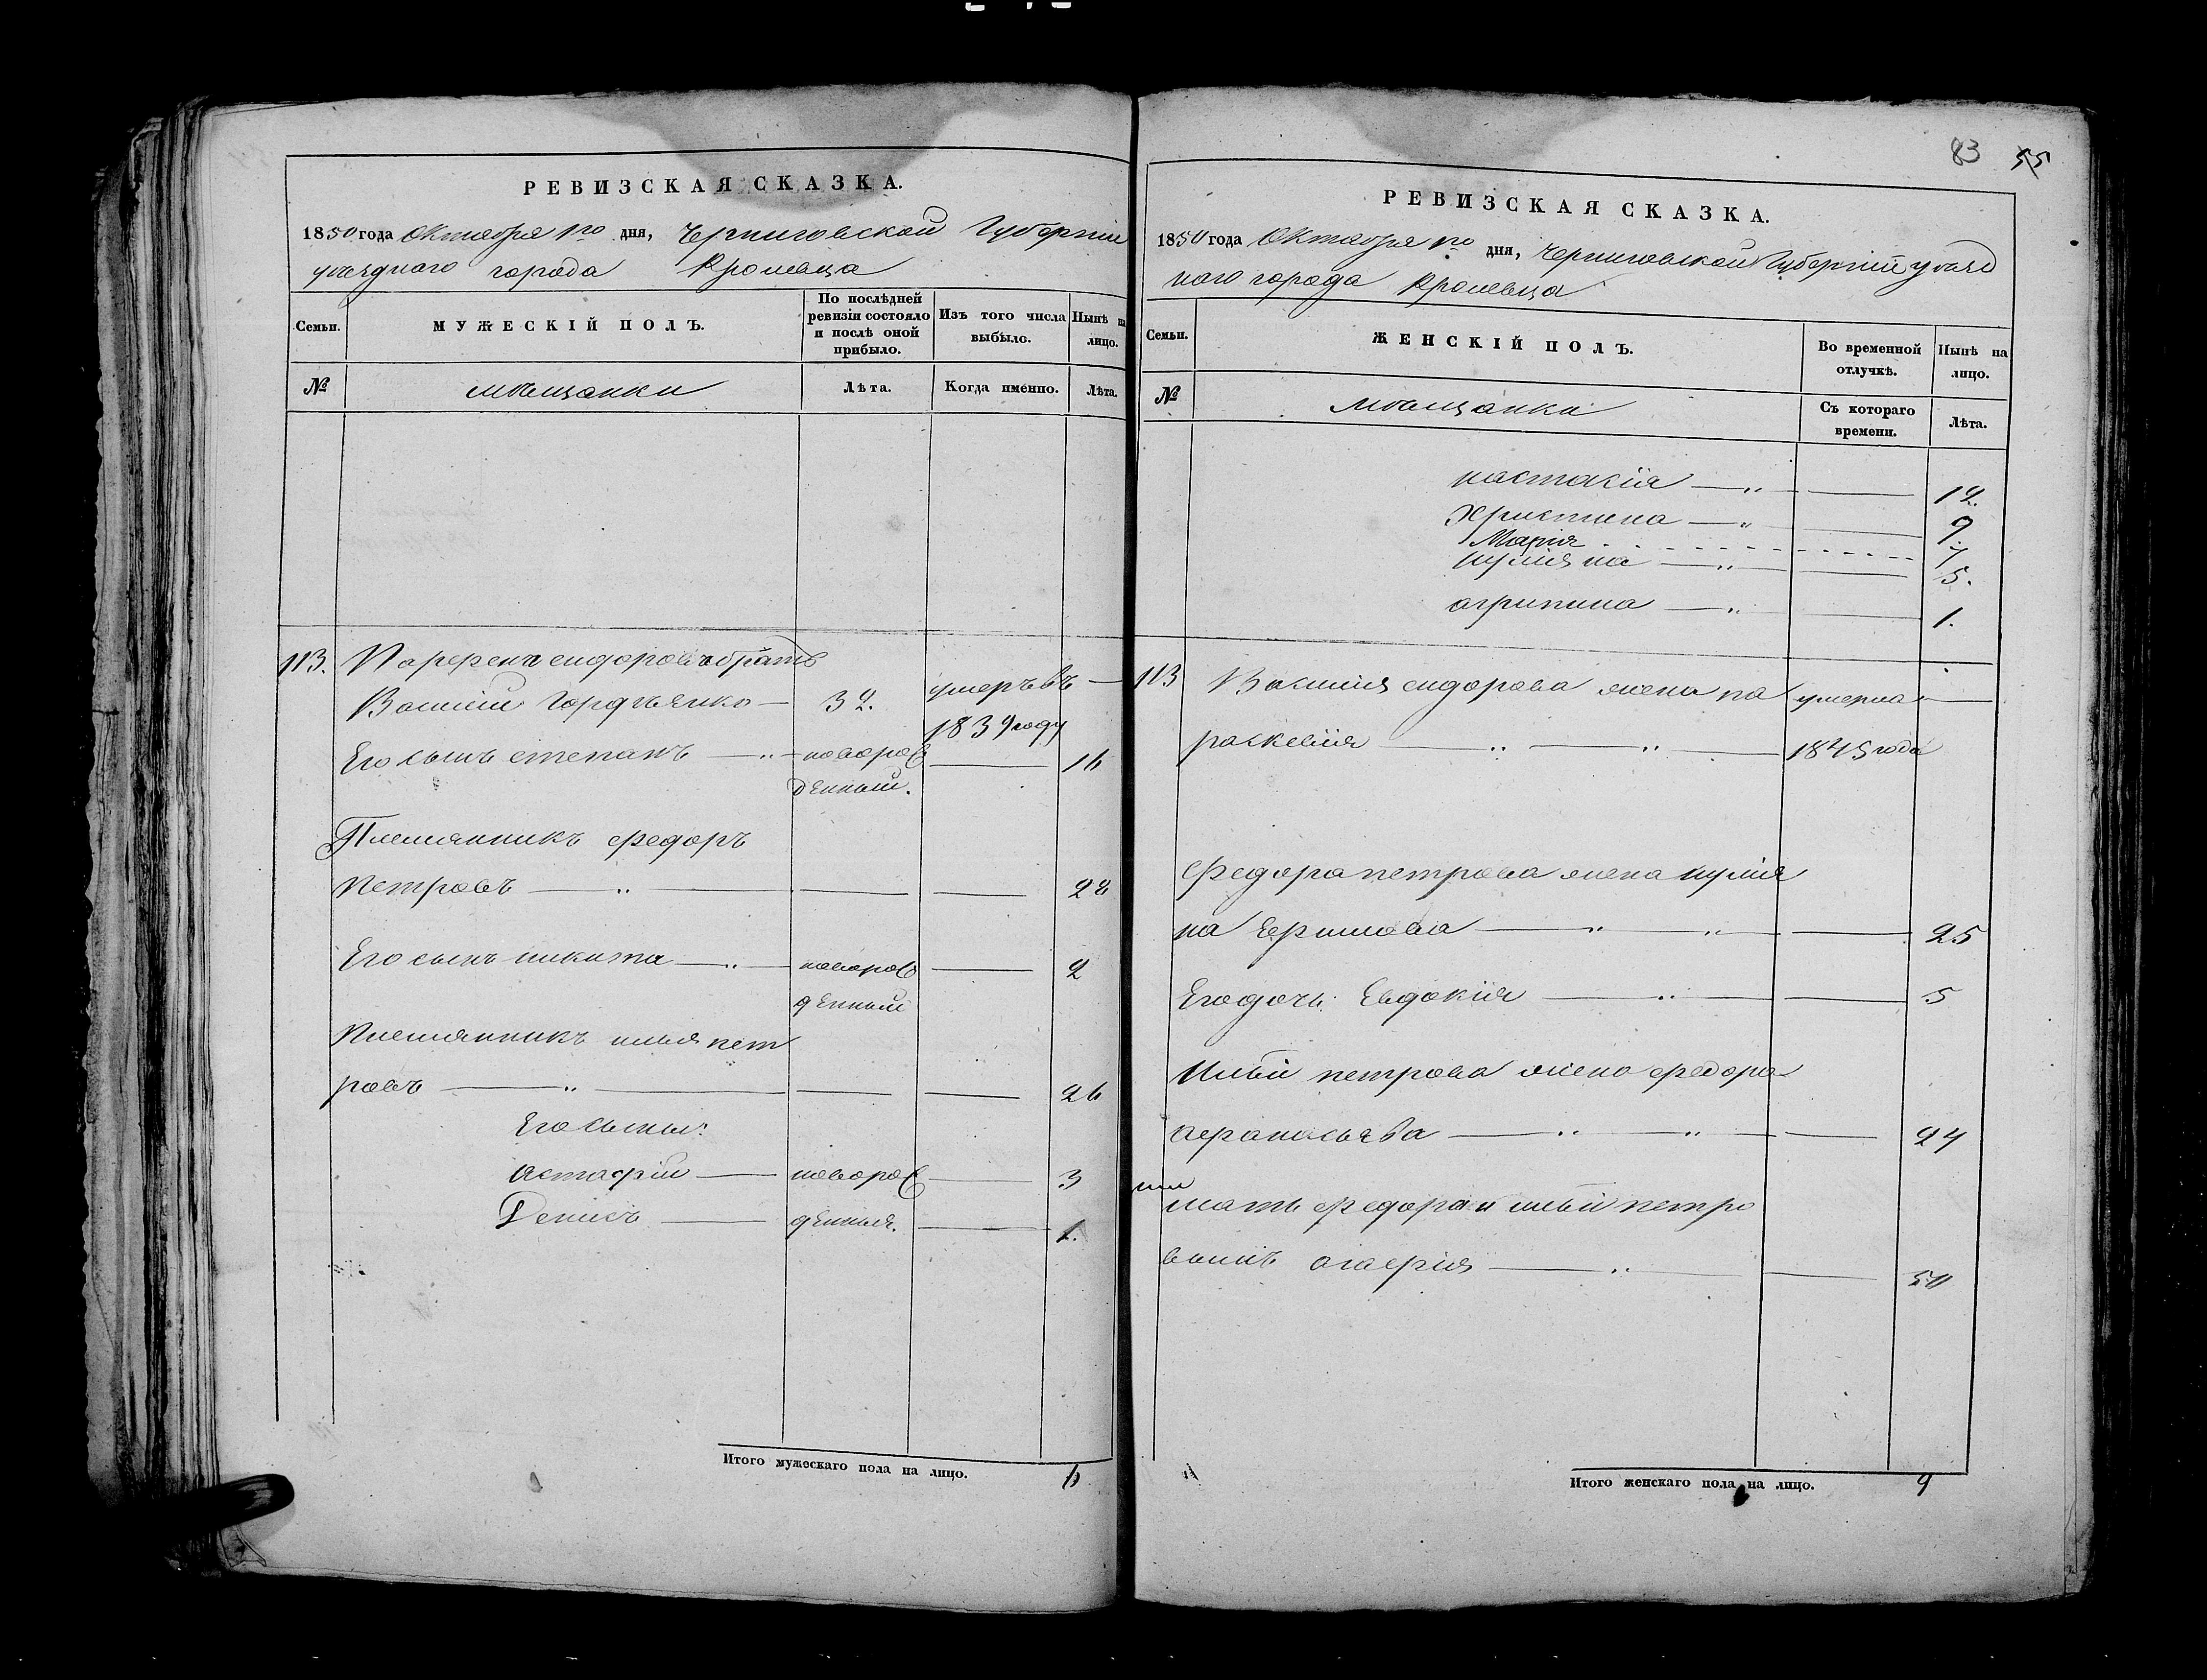 РЕВИЗСКАЯ СКАЗКА.
1850 года Октября 1го дня, Черниговской Губернии
уѣзднаго города Кролевца
Семьи.
МУЖЕСКІЙ ПОЛЪ.
По послѣдней ревизіи состояло и послѣ оной прибыло.
Изъ того числа выбыло.
Нынѣ на лицо.
№
мѣщанки
Лѣта.
Когда именно.
Лѣта.
113. Парфенъ сидоровъ братъ
Василий Гордѣенко — 32. умеръ въ —
1839 году
Его сынъ степанъ — " — новорож — 16
денный.
Племянникъ федоръ
Петровъ — " — 28
Его сынъ никита — " — новорож — 2
денный
Племянникъ илья пет
ровъ — " — 26
Его сыны:
Астафий — новорож — 3
Денисъ — денные. — 1.
Итого мужескаго пола на лицо. 6
83 55
РЕВИЗСКАЯ СКАЗКА.
1850 года Октября 1го дня, Черниговской Губерній уѣзд
ного города Кролевца
Семьи.
ЖЕНСКІЙ ПОЛЪ.
Во временной отлучкѣ.
Нынѣ на лицо.
№
мѣщанки
Съ котораго времени.
Лѣта.
настасія — " — 12.
Христина — " — 9
Марія 7
иулияна — " — 5.
агрипина — " — 1.
113 Василия сидорова жена па умерла —
расковия — " — " — 1845 года
Федора петрова жена иулия
на — " — " — 25
Его дочь Евдокия — " — 5
Ильи петрова жена федора
афанасьева — " — " — 24
мать федора и ильи петро
выхъ агафия — " — 50
Итого женскаго пола на лицо. 9